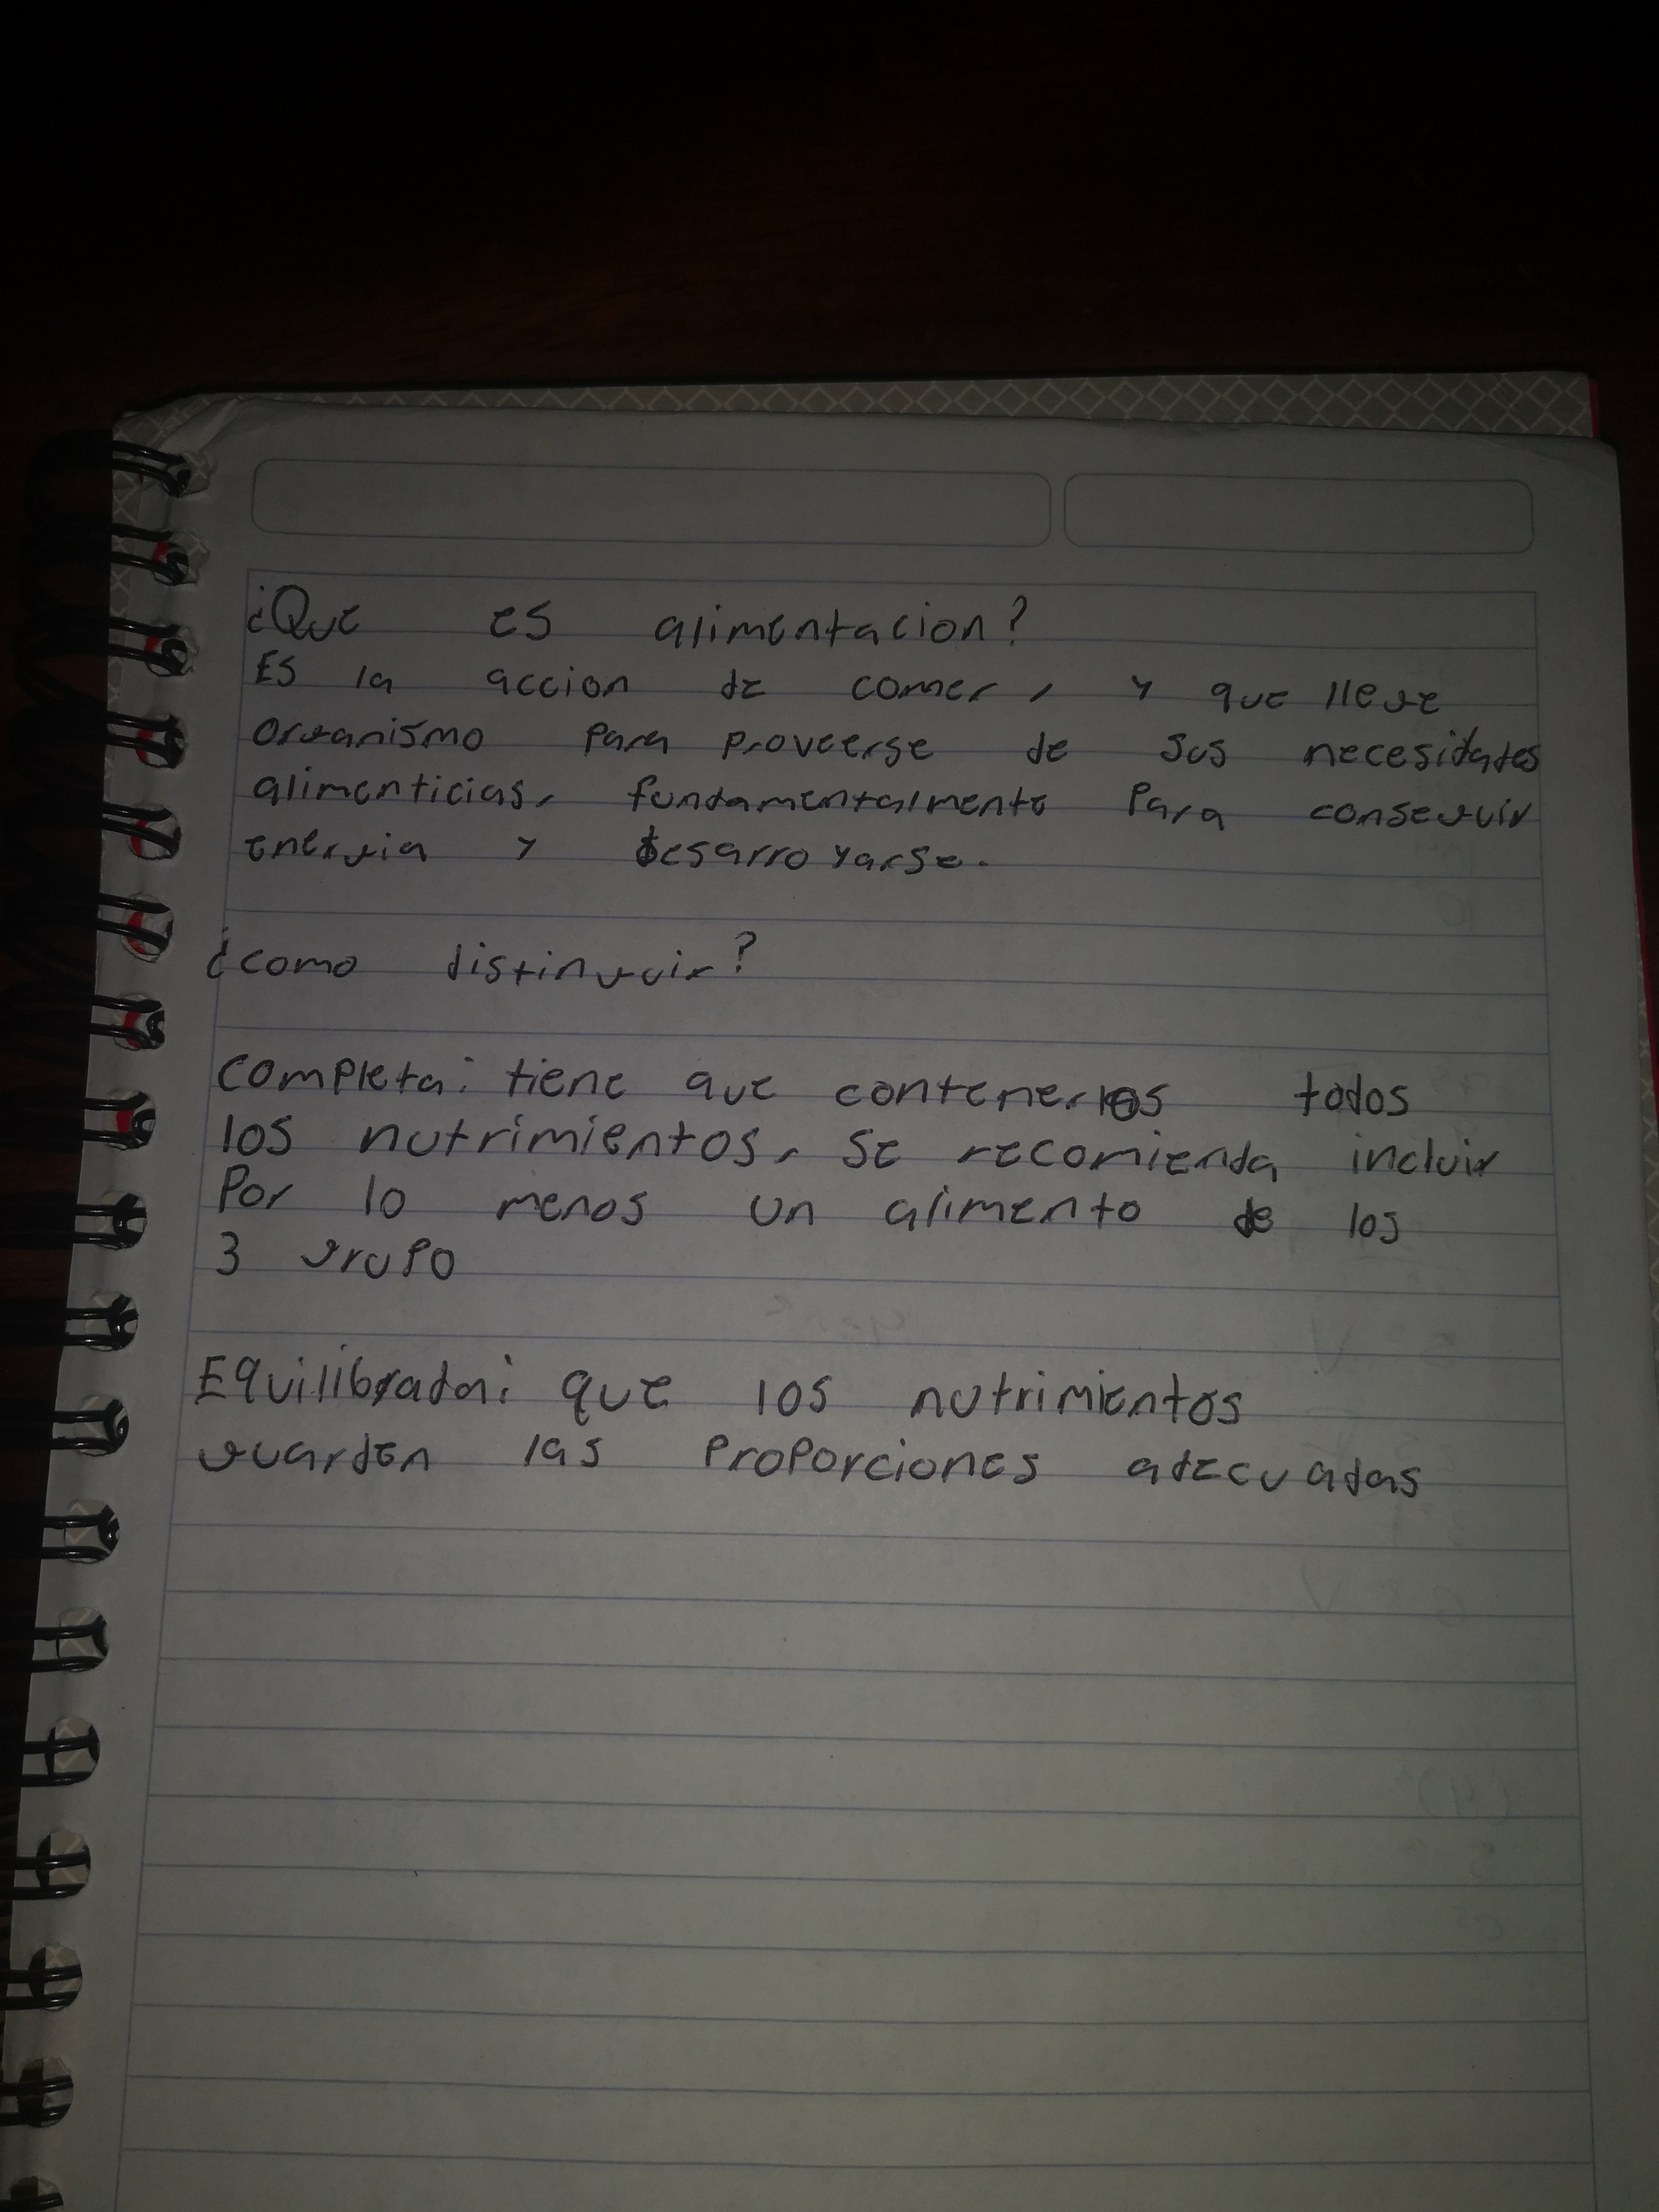 ¿Que es alimentacion?
Es la accion de comer, y que llege
organismo para proveerse de sus necesidades
alimenticias, fundamentalmente para conseguir
energia y desarroyarse.
¿como distinguir?
completa: tiene que contenerlos todos
los nutrimientos, se recomienda incluir
Por lo menos un alimento de los
3 grupo
Equilibrada: que los nutrimientos
guarden las proporciones adecuadas